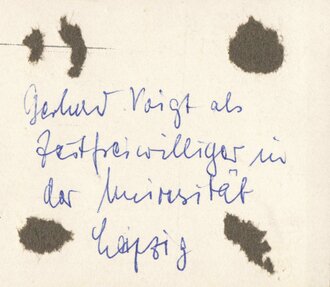 Gerhard Voigt als
Zeitfreiwilliger in
der Universität
Leipzig